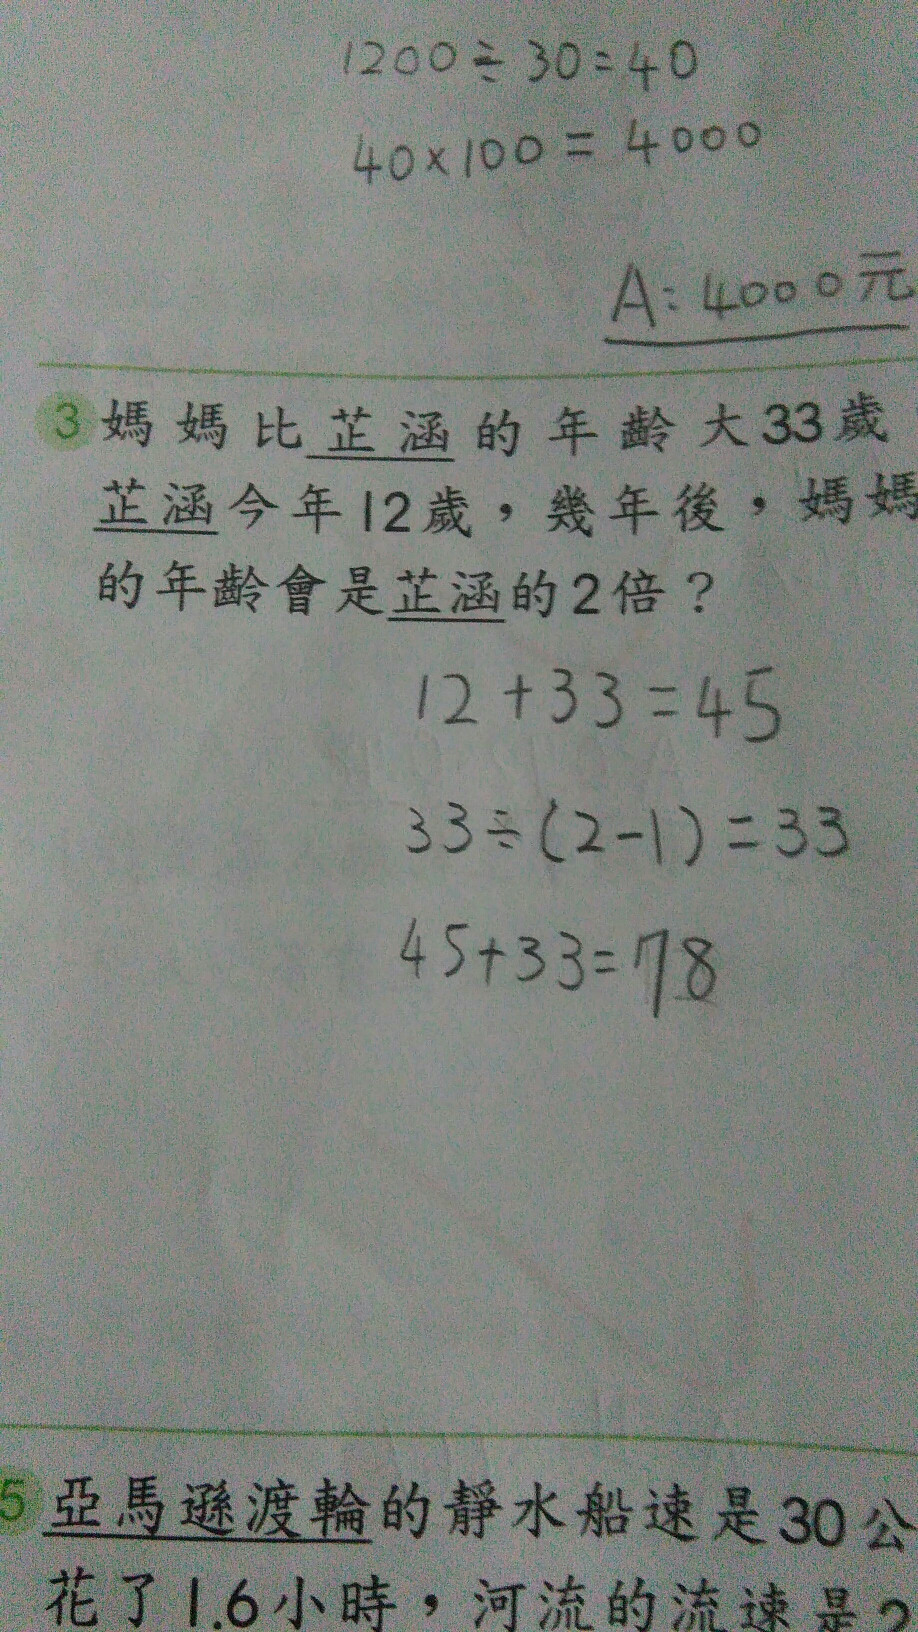 1200÷30=40
40×100=4000
A:4000元
3 媽媽比芷涵的年齡大33歲
芷涵今年12歲，幾年後，媽媽
的年齡會是芷涵的2倍？
12+33=45
33÷(2-1)=33
45+33=78
5 亞馬遜渡輪的靜水船速是30公
花了1.6小時，河流的流速是2